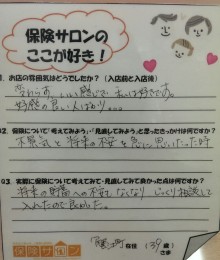 保険サロンの
ここが好き！
1. お店の雰囲気はどうでしたか？（入店前と入店後）
変わらず、いい感じで
好感の良い人ばかり…。
02. 保険について「考えてみよう・「見直してみよう」と思ったきっかけは何ですか？
不景気で将来の不安を急に思いたった時
03. 実際に保険について考えてみて・見直してみて良かった点は何ですか？
将来の財産への不安もなくなり じっくり相談して
入れたので良かった。
保険サロン
町在住
才
さま